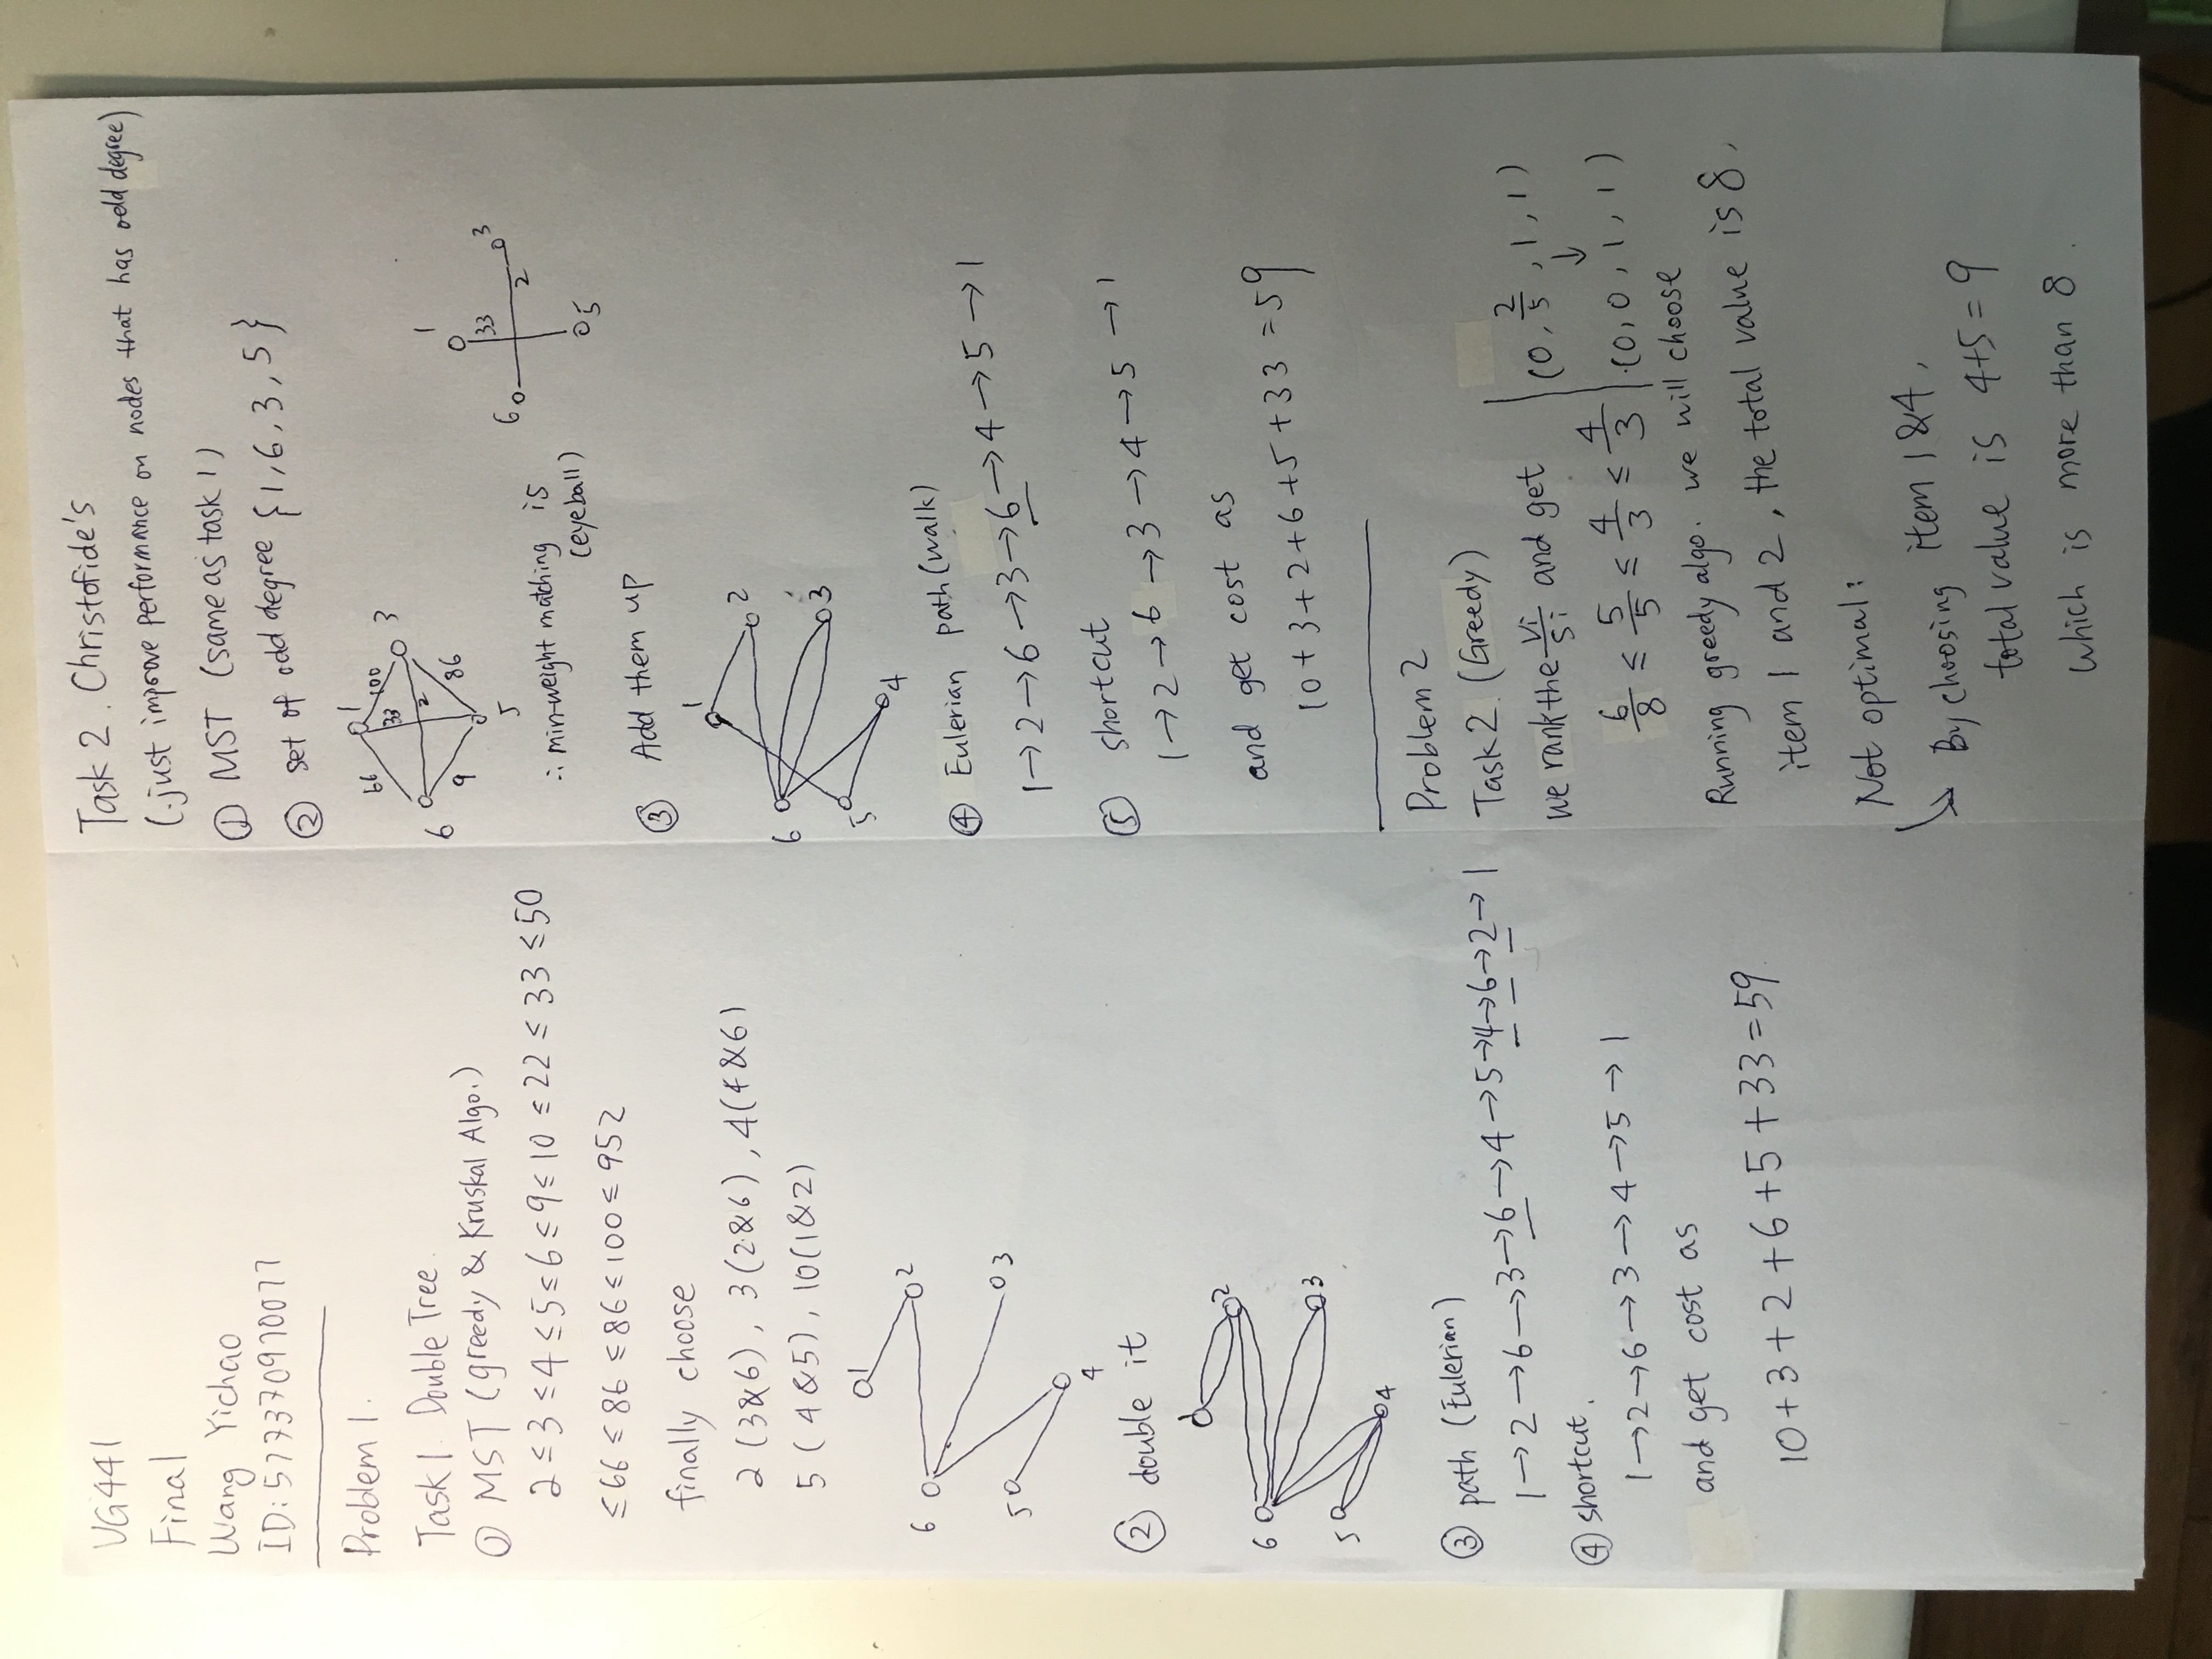 VG441
Final
Wang Yichao
ID: 517370910077
Problem 1.
Task 1. Double Tree.
① MST (greedy & Kruskal Algo.)
2 ≤ 3 ≤ 4 ≤ 5 ≤ 6 ≤ 9 ≤ 10 ≤ 22 ≤ 33 ≤ 50
≤ 66 ≤ 86 ≤ 86 ≤ 100 ≤ 952
finally choose
2 (3&6), 3 (2&6), 4 (4&6)
5 (4&5), 10 (1&2)
1
6
2
5
3
4
② double it
1
2
6
3
5
4
③ path (Eulerian)
1→2→6→3→6→4→5→4→6→2→1
④ shortcut.
1→2→6→3→4→5→1
and get cost as
10+3+2+6+5+33=59
Task 2. Christofide's
(just improve performance on nodes that has odd degree)
① MST (same as task 1)
② set of odd degree {1, 6, 3, 5}
1
66
100
33
3
6
2
9
86
5
∴ min-weight matching is
(eyeball)
1
33
3
6
2
5
③ Add them up
1
2
6
3
5
4
④ Eulerian path (walk)
1→2→6→3→6→4→5→1
⑤ shortcut
1→2→6→3→4→5→1
and get cost as
10+3+2+6+5+33=59
Problem 2
Task 2. (Greedy)
we rank the Vi/Si and get
6/8 ≤ 5/5 ≤ 4/3 ≤ 4/3
(0, 2/5, 1, 1)
↓
(0, 0, 1, 1)
Running greedy algo. we will choose
item 1 and 2, the total value is 8.
Not optimal:
↘ By choosing item 1&4,
total value is 4+5=9
which is more than 8.